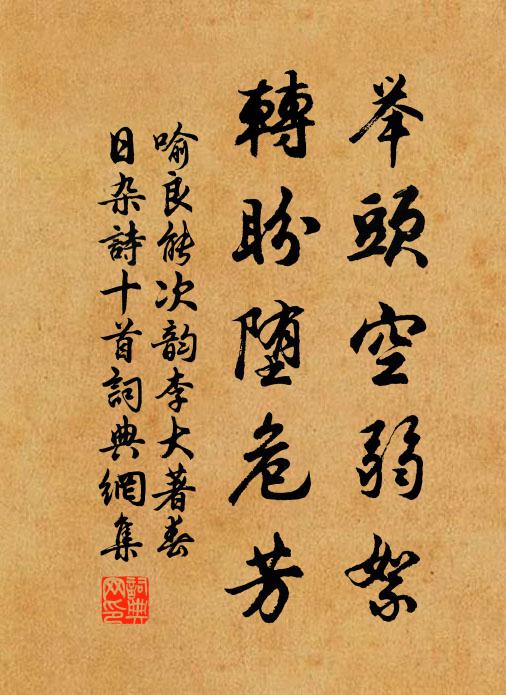 举頭空弱絮
轉盼堕危芳
喻良能次韵李大著春
日杂詩十首詞典網集
詞典
网印